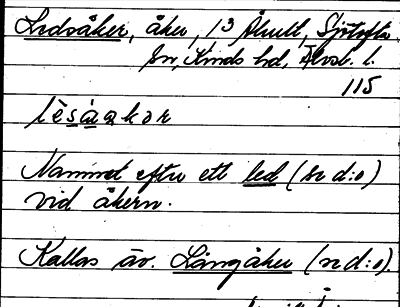 Ledsåker, åker, 13 Ålhult, Sjötofta
sn, Kinds hd, Älvsb. l.
115
lèsåakər
Namnet efter ett led (se d:o)
vid åkern.
Kallas äv. Långåker (se d:o).